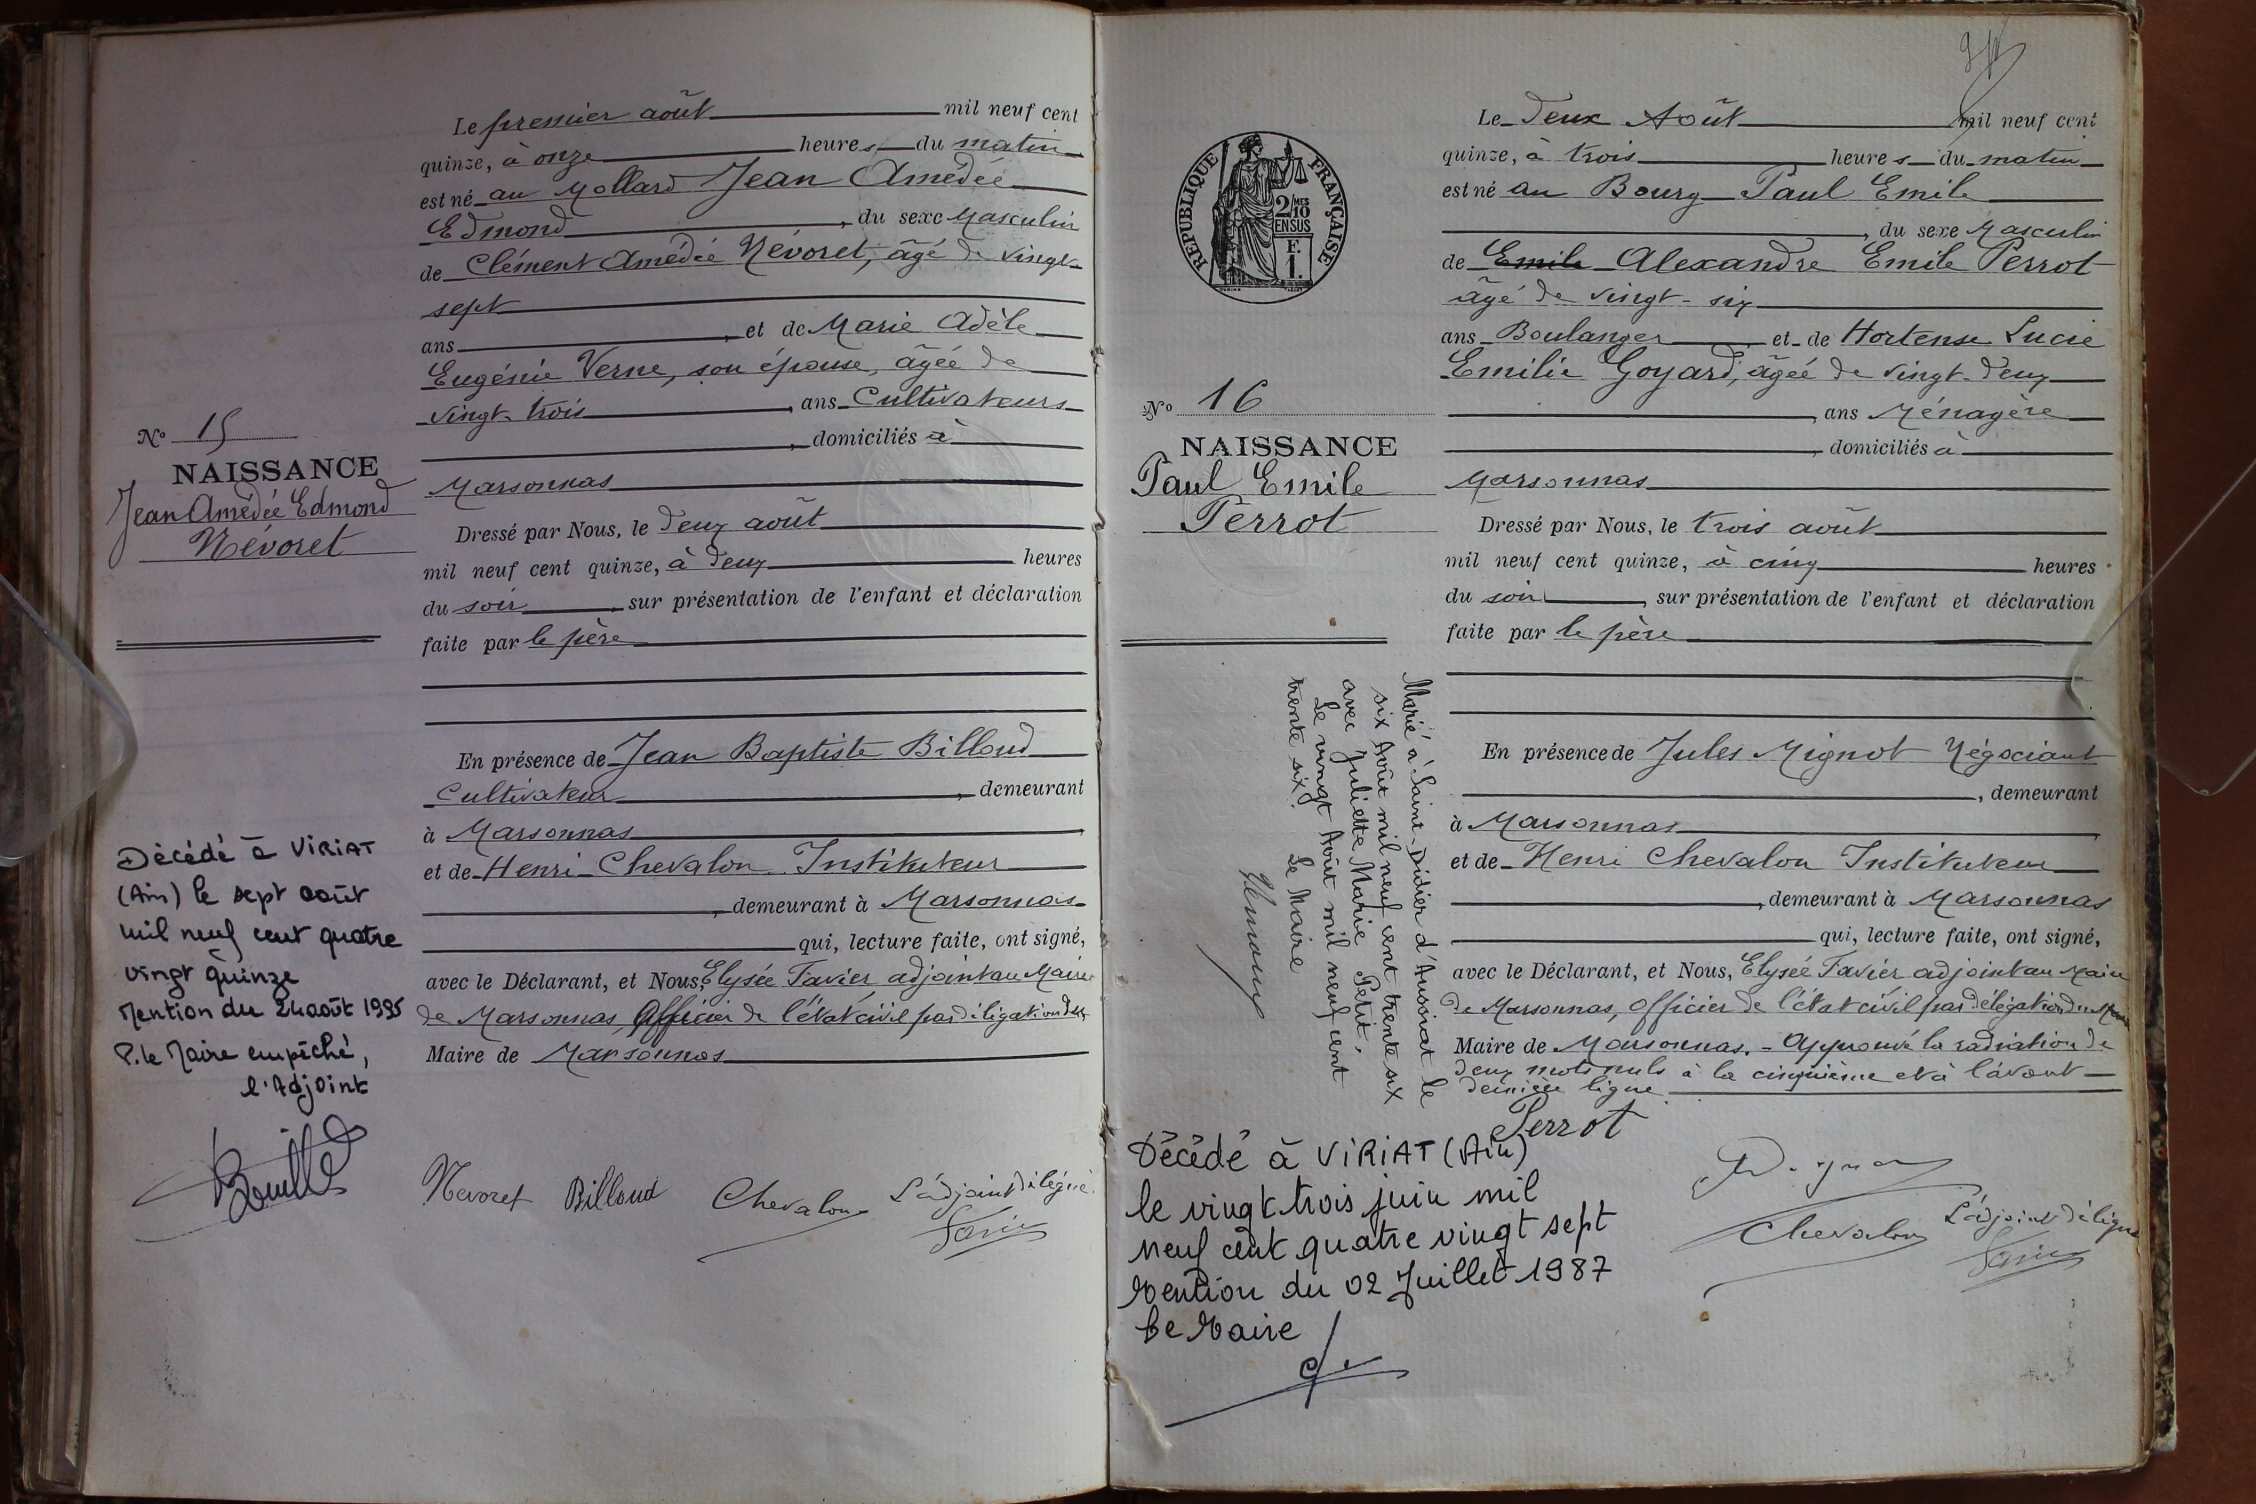 Le premier août mil neuf cent
quinze, à onze heures du matin
est né au Mollard Jean Amédée
Edmond, du sexe Masculin
de Clément Amédée Névoret, âgé de vingt-
sept
ans, et de Marie Adèle
Eugénie Verne, son épouse, âgée de
vingt-trois, ans Cultivateurs
, domiciliés à
Marsonnas
Dressé par Nous, le deux août
mil neuf cent quinze, à deux heures
du soir, sur présentation de l'enfant et déclaration
faite par le père
En présence de Jean Baptiste Billoud
Cultivateur, demeurant
à Marsonnas
et de Henri Chevalon Instituteur
, demeurant à Marsonnas
qui, lecture faite, ont signé,
avec le Déclarant, et Nous, Elysée Favier adjoint au Maire
de Marsonnas, Officier de l'état civil par délégation du
Maire de Marsonnas
Nevoret Billoud Chevalon L'adjoint délégué
Favier
No 15
NAISSANCE
Jean Amédée Edmond
Névoret
Décédé à VIRIAT
(Ain) le sept août
mil neuf cent quatre
vingt quinze
Mention du 24 août 1995
P. le Maire empêché,
l'Adjoint
Le Deux Août mil neuf cent
quinze, à trois heures du matin
est né au Bourg Paul Emile
, du sexe Masculin
de Emile Alexandre Emile Perrot
âgé de vingt-six
ans Boulanger et de Hortense Lucie
Emilie Goyard, âgée de vingt-deux
, ans Ménagère
, domiciliés à
Marsonnas
Dressé par Nous, le trois août
mil neuf cent quinze, à cinq heures
du soir, sur présentation de l'enfant et déclaration
faite par le père
En présence de Jules Mignot Négociant
, demeurant
à Marsonnas
et de Henri Chevalon Instituteur
, demeurant à Marsonnas
qui, lecture faite, ont signé,
avec le Déclarant, et Nous, Elysée Favier adjoint au Maire
de Marsonnas, Officier de l'état civil par délégation du Maire
Maire de Marsonnas. - Approuvé la radiation de
deux mots nuls à la cinquième et à l'avant-
dernière ligne
Perrot
Chevalon L'adjoint délégué
Favier
RÉPUBLIQUE FRANÇAISE
2/10 MES
EN SUS
F.
1.
No 16
NAISSANCE
Paul Emile
Perrot
Marié à Saint-Didier d'Aussiat le
six Août mil neuf cent trente six
avec Juliette Marie Petit,
Le vingt Août mil neuf cent
trente six. Le Maire
Décédé à VIRIAT (Ain)
le vingt trois juin mil
neuf cent quatre vingt sept
Mention du 02 Juillet 1987
Le Maire